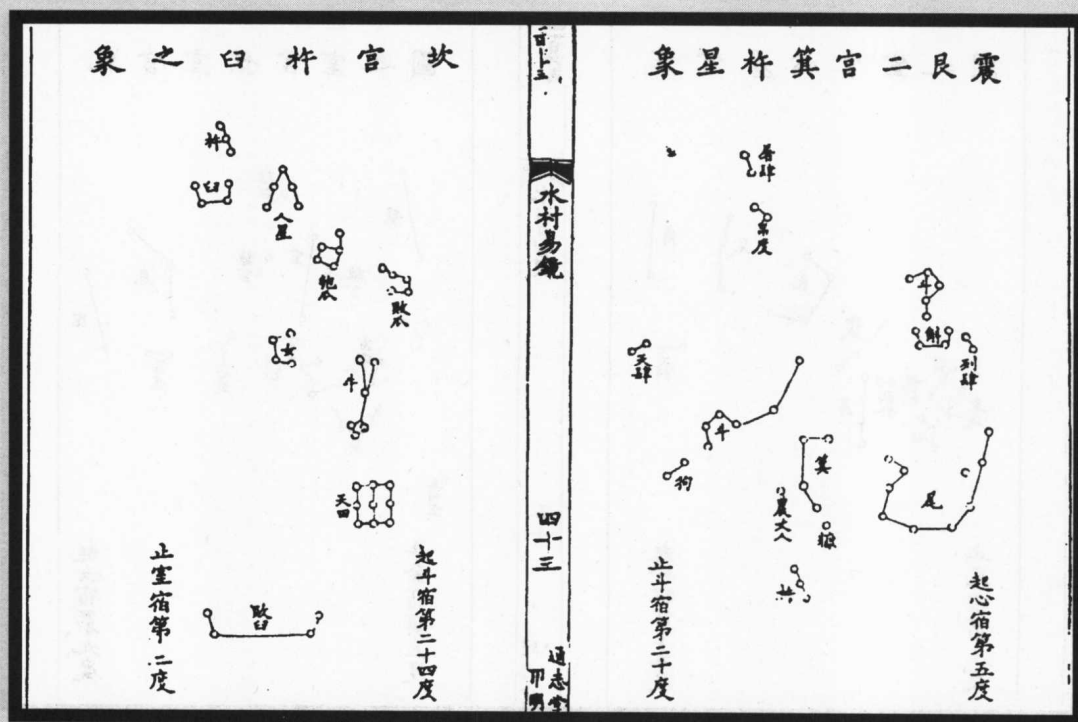 震艮二宮箕杵星象
屠肆
帛度
斗
斛
列肆
天肆
斗
箕
尾
狗
農丈人
糠
杵
起心宿第五度
止斗宿第二十度
水村易鏡
四十三
通志堂
坎宮杵臼之象
杵
臼
人星
匏瓜
敗瓜
女
牛
天田
敗臼
起斗宿第二十四度
止室宿第二度